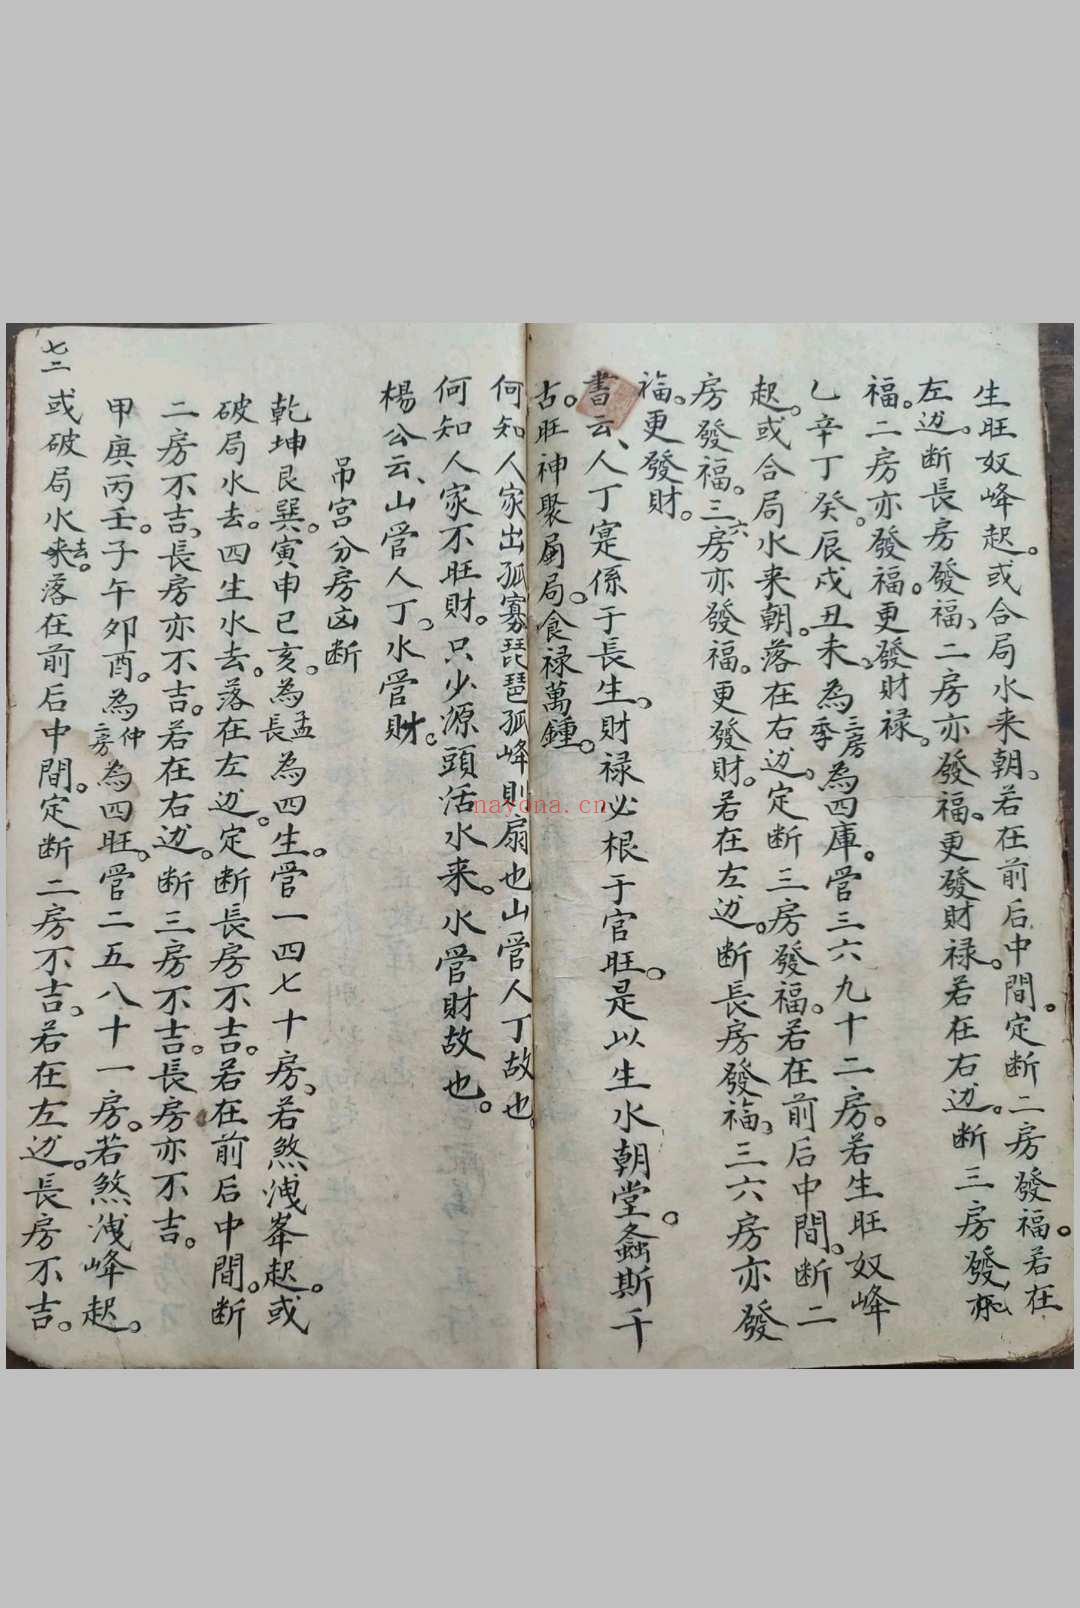 生旺奴峰起。或合局水来朝、若在前后中間。定断二房發福。若在
左边。断長房發福、二房亦發福。更發財禄。若在右边。断三房發
福。二房亦發福。更發財禄。
乙辛丁癸。辰戌丑未、為季三房為四庫。管三六九十二房。若生旺奴峰
起。或合局水来朝。落在右边。定断三房發福。若在前后中間。断二
房發福。三六房亦發福。更發財。若在左边。断長房發福、三六房亦發
福。更發財。
書云、人丁寔係于長生、財禄必根于官旺。是以生水朝堂。螽斯千
古。旺神聚局。食禄萬鍾。
何知人家出孤寡琵琶孤峰則扇也山管人丁故也。
何知人家不旺財。只少源頭活水来。水管財故也。
楊公云、山管人丁、水管財。
吊宮分房凶断
乾坤艮巽。寅申巳亥。為孟長為四生。管一四七十房、若煞洩峯起。或
破局水去。四生水去。落在左边。定断長房不吉。若在前后中間。断
二房不吉、長房亦不吉。若在右边。断三房不吉。長房亦不吉。
甲庚丙壬。子午夘酉。為仲二房為四旺。管二五八十一房。若煞洩峰起。
七二
或破局水来去。落在前后中間。定断二房不吉、若在左边。長房不吉。
nayona.cn